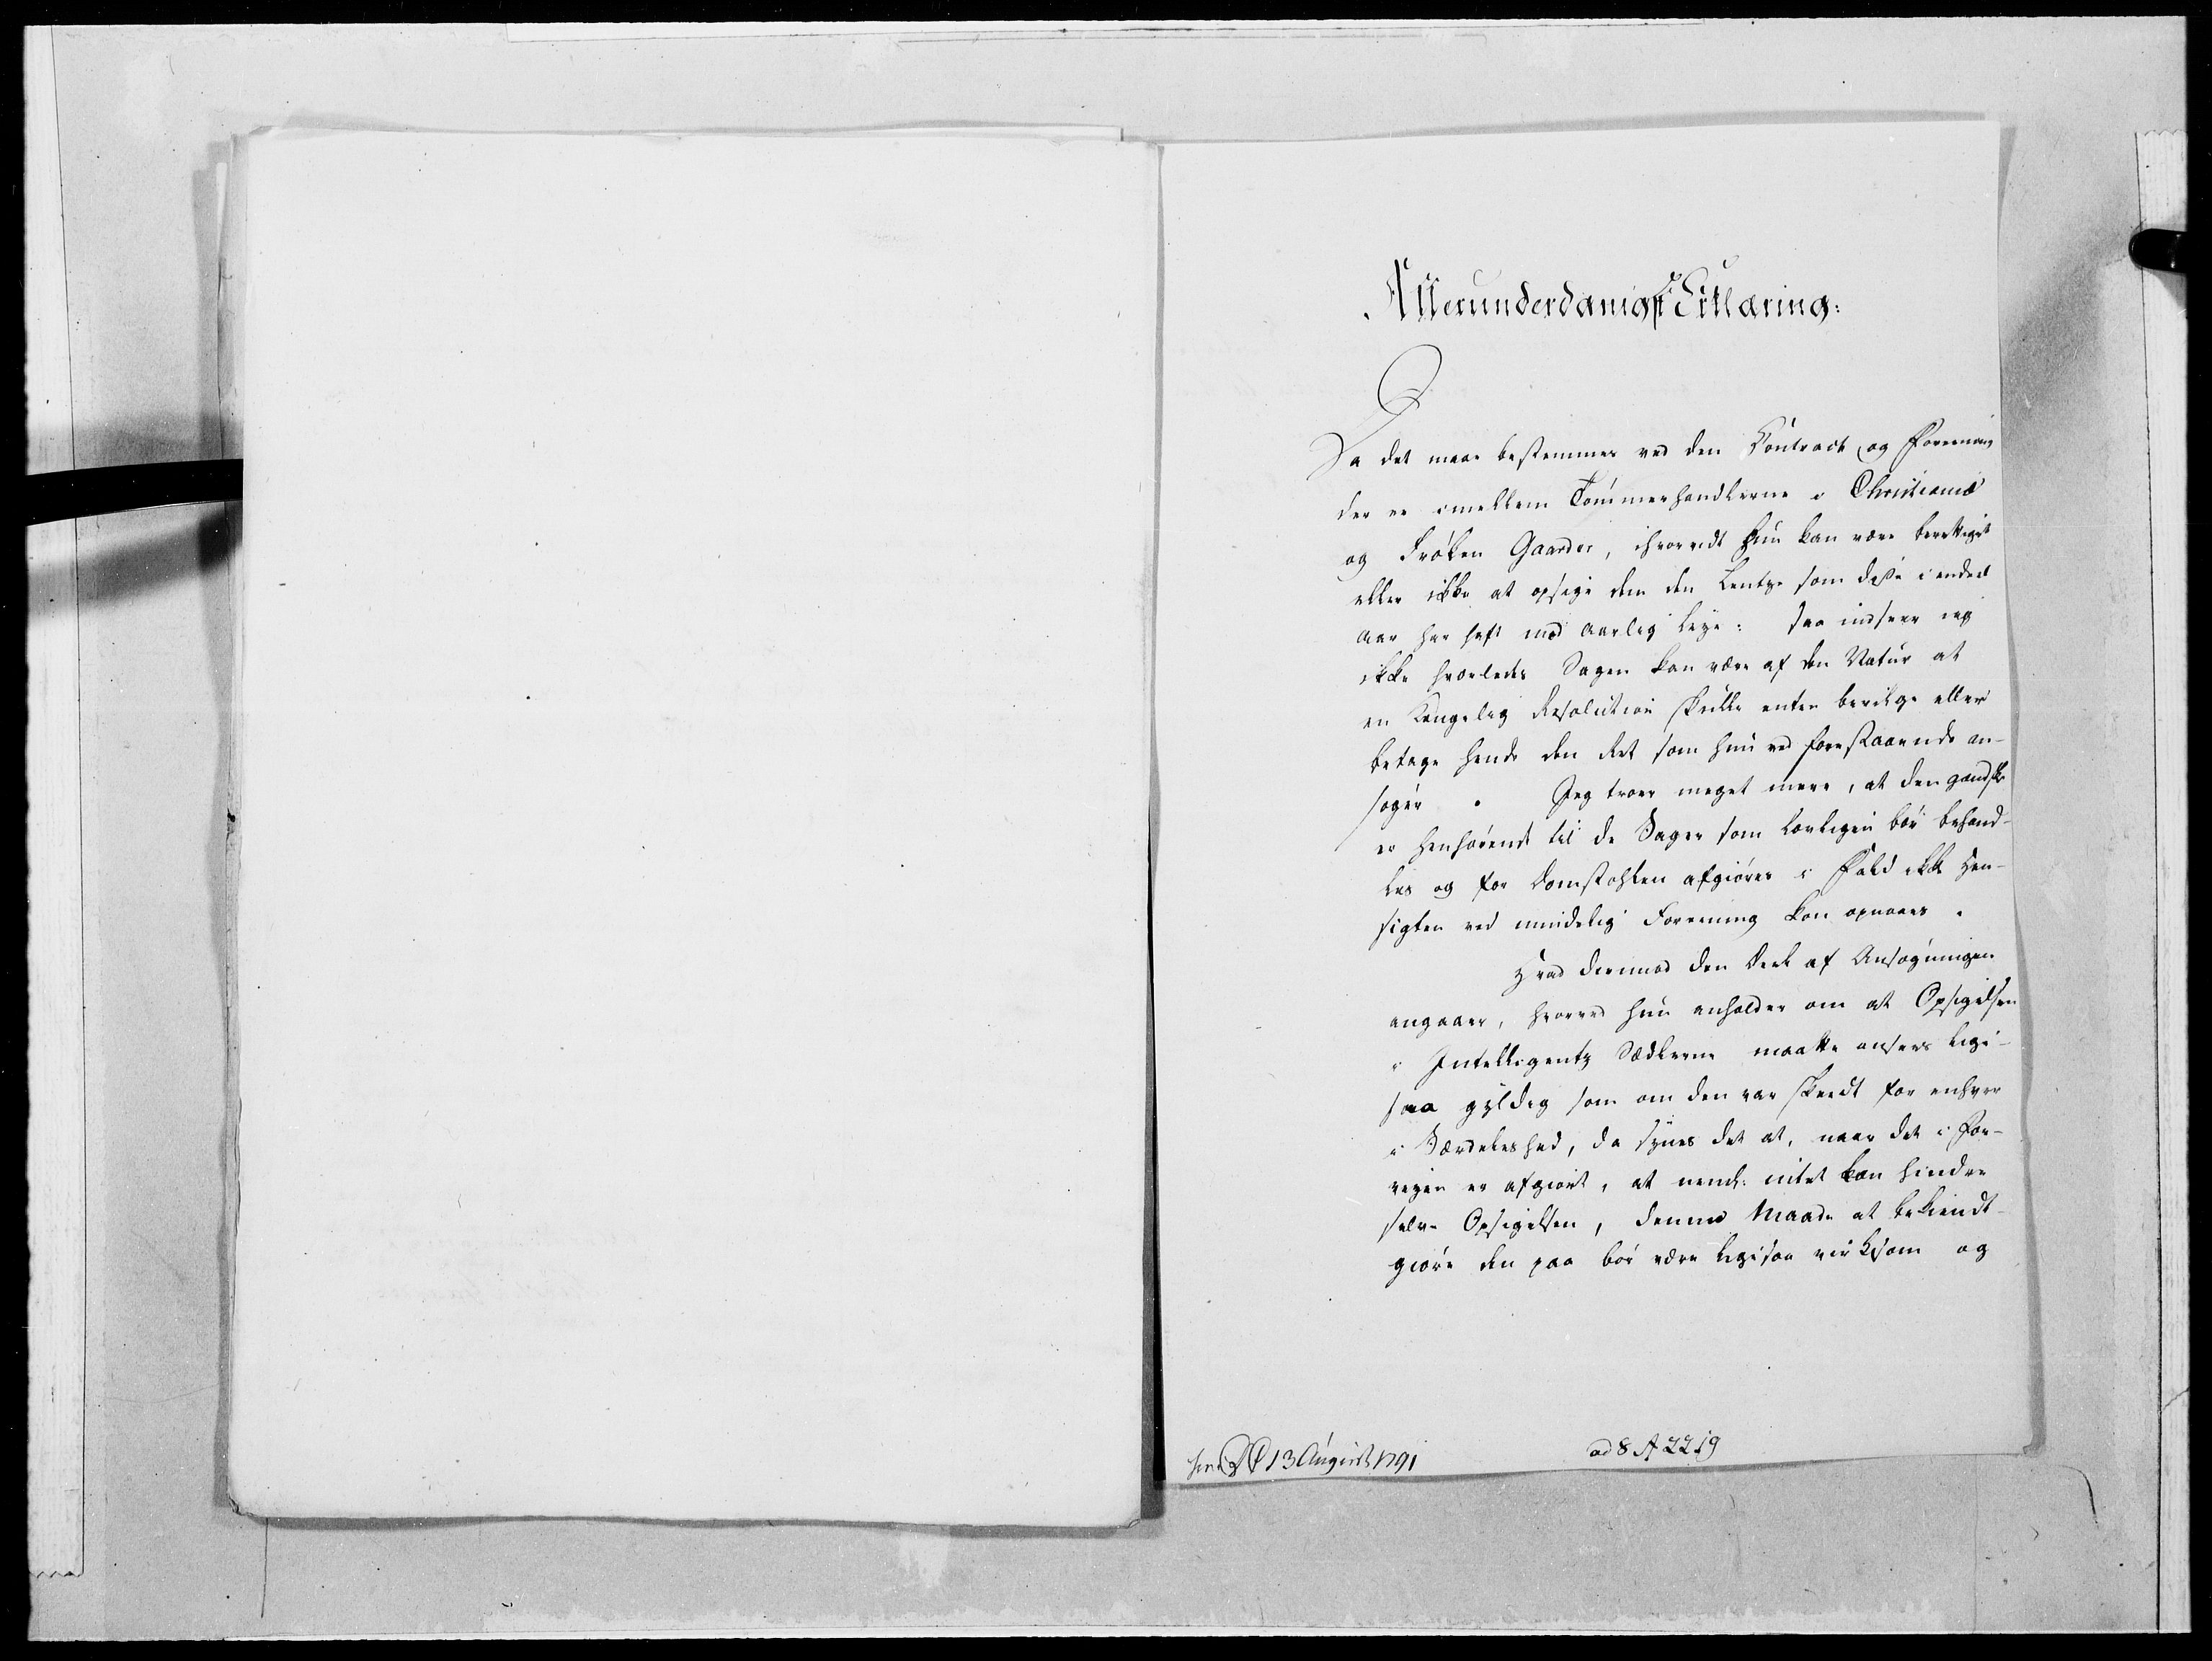 Allerunderdanigst Erklæring:
Da det maae bestemmes ved den Contract og Foreening
der er imellem Tømmerhandlerne i Christiania
og Frøken Gaarder, ihvorvidt hun kan være berettiget
eller ikke at opsige dem den som disse i endeel
Aar har haft med aarlig Leye: saa indseer jeg
ikke hvorledes Sagen kan være af den Natur at
en Kongelig Resolution skulle enten bevilge eller
betage hende den Ret som hun ved forestaaende an-
søger. Jeg troer meget mere, at den gandske
er henhørende til de Sager som lovligen bør behand-
les og for Domstohlen afgiøres i Fald ikke Hen-
sigten ved mindelig Foreening kan opnaaes.
Hvad derimod den Deel af Ansøgningen
angaaer, hvorved hun anholder om at Opsigelsen
i Intelligentz Sædlerne maatte ansees lige-
saa gyldig som om den var skeedt for enhver
i Særdeleshed, da synes det at, naar det i For-
vejen er afgiort, at nemlig intet kan hindre
selve Opsigelsen, denne Maade at bekiendt-
giøre den paa bør være ligesaa virksom og
13 August 1791
ad 8 A 2219